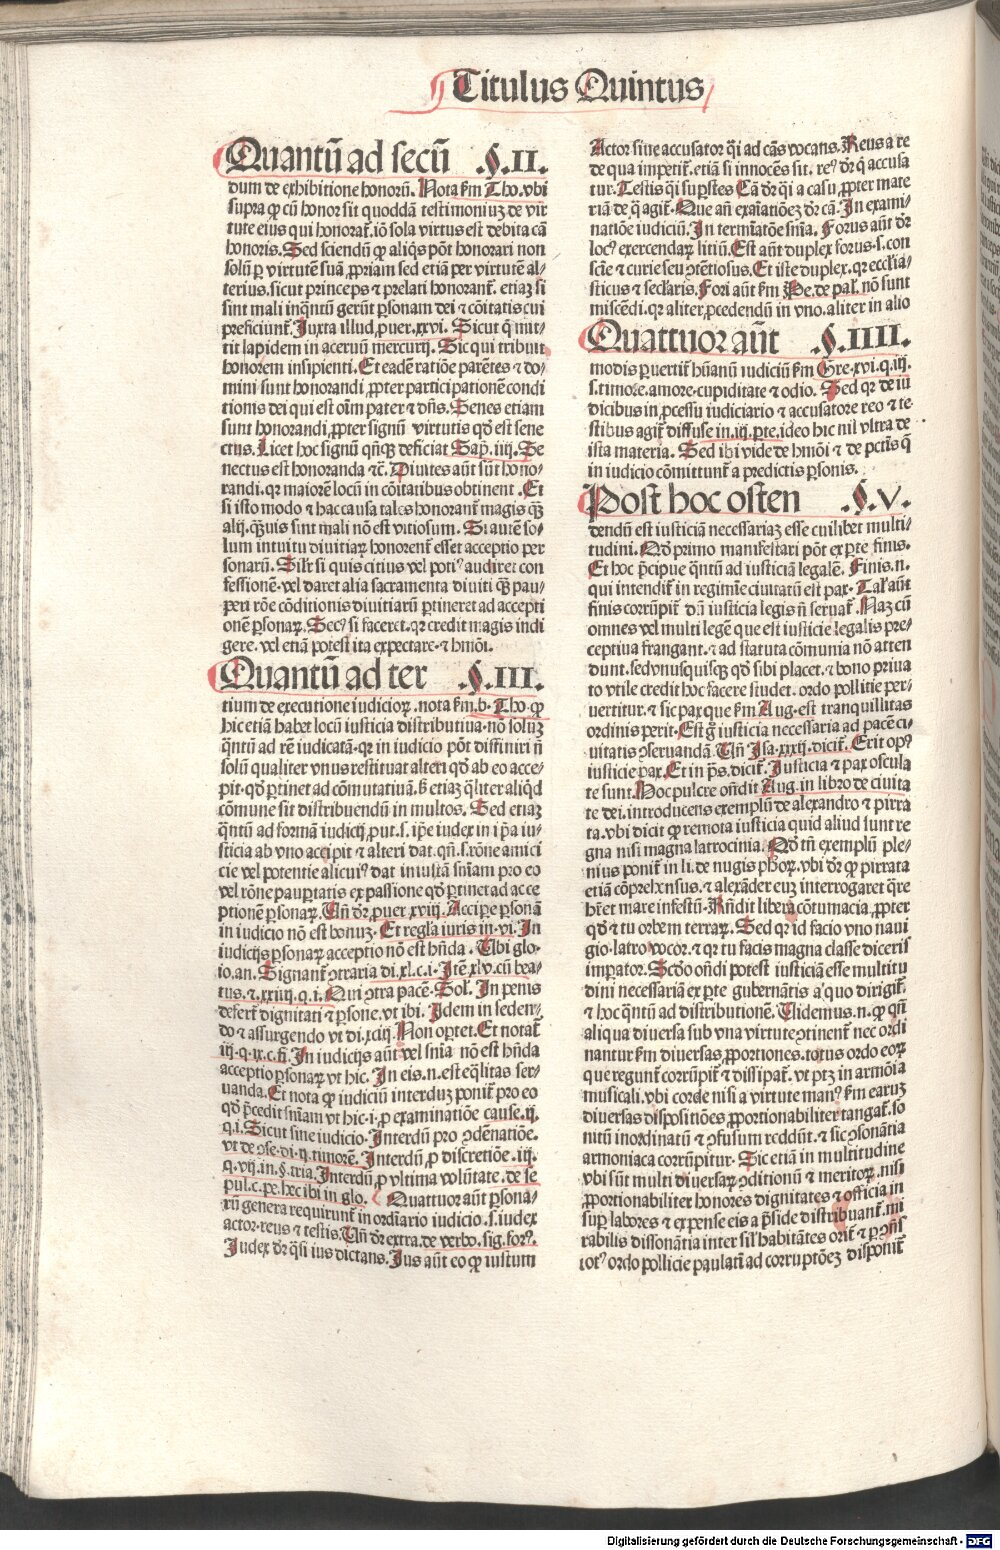 Titulus Quintus
Quantū ad secū .§.II.
dum de exhibitione honorū. Nota ẜm Tho. vbi
supra ꝙ cū honor sit quoddā testimoniuꝫ de vir
tute eius qui honorat᷑. iō sola virtus est debita cā
honoris. Sed sciendū ꝙ aliq̄s pōt honorari non
solū ꝑ virtutē suā ꝓpriam sed etiā per virtutē al⸗
terius. sicut princeps ꞇ prelati honorant᷑. etiaꝫ si
sint mali inq̄ntū gerūt ꝑsonam dei ꞇ cōitatis cui
preficiunt᷑. Juxta illud. puer. xxvi. Sicut q̄ mit⸗
tit lapidem in aceruū mercurij. Sic qui tribuit
honorem insipienti. Et eadē ratiōe parētes ꞇ do⸗
mini sunt honorandi ꝓpter participationē condi
tionis dei qui est oīm pater ꞇ dn̄s. Senes etiam
sunt honorandi, ꝓpter signū virtutis qd̓ est sene
ctus. Licet hoc signū qn̄qꝫ deficiat Sap. iiij. Se
nectus est honoranda ꞇc̄. Diuites aūt sūt hono⸗
randi. qꝛ maiorē locū in cōitatibus obtinent. Et
si isto modo ꞇ hac causa tales honorant᷑ magis qꝫ
alij. qꝫuis sint mali nō est vitiosum. Si autē so⸗
lum intuitu diuitiaꝝ honorent᷑ esset acceptio per
sonarū. Silr̄ si quis citius vel potiꝰ audiret con
fessionē. vel daret alia sacramenta diuiti qꝫ pau⸗
peri rōe cōditionis diuitiarū ꝑtineret ad accepti
onē ꝑsonaꝝ. Secꝰ si faceret. qꝛ credit magis indi
gere. vel etiā potest ita expectare. ꞇ hmōi.
Quantū ad ter .§.III.
tium de executione iudicioꝝ. nota ẜm. b. Tho. ꝙ
hic etiā habet locū iusticia distributiua. nō soluꝫ
q̄ntū ad rē iudicatā. qꝛ in iudicio pōt diffiniri n̄
solū qualiter vnus restituat alteri qd̓ ab eo acce⸗
pit. qd̓ ꝑtinet ad cōmutatiuā. ẜ etiaꝫ q̄liter aliqd̓
cōmune sit distribuendū in multos. Sed etiaꝫ
q̄ntū ad formā iudicij, put. s. ip̄e iudex in ip̄a iu⸗
sticia ab vno accipit ꞇ alteri dat. qn̄. s. rōne amici
cie vel potentie alicuiꝰ dat iniustā sn̄iam pro eo
vel rōne pauꝑtatis ex passione qd̓ ꝑtinet ad acce
ptionē ꝑsonaꝝ. Un̄ dr̄. puer xviij. Accipe ꝑsonā
in iudicio nō est bonuꝫ. Et regl̓a iuris in. vi. In
iudicijs ꝑsonaꝝ acceptio nō est hn̄da. Ubi glo.
io. an. Signant᷑ ꝯtraria di. xl. c. i. Itē. xlv. cū bea⸗
tus. ꞇ. xxiiij. q. i. Qui ꝯtra pacē. Sol̓. In penis
defert᷑ dignitati ꞇ ꝑsone. vt ibi. Idem in seden⸗
do ꞇ assurgendo vt di. xciij. Non opꝫtet. Et notat᷑
iij. q. ix. c. fi. In iudicijs aūt vel sn̄ia nō est hn̄da
acceptio ꝑsonaꝝ vt hic. In eis. n. est eq̄litas ser⸗
uanda. Et nota ꝙ iudiciū interduꝫ ponit᷑ pro eo
qd̓ p̄cedit sn̄iam vt hic. i. ꝓ examinatiōe cause. ij.
q. i. Sicut sine iudicio. Interdū pro ꝯdēnatiōe.
vt de ꝯse. di. ij. timorē. Interdū ꝓ discretiōe. iij.
q. vij. in. §. tria. Interdū ꝓ vltima volūtate. de se
pul. c. pe. hec ibi in glo. Quattuor aūt ꝑsona⸗
rū genera requirunt᷑ in ordīario iudicio. s. iudex
actor. reus ꞇ testis. Un̄ dr̄ extra. de verbo. sig. forꝰ.
Judex dr̄ q̄si ius dictans. Jus aūt eo ꝙ iustum
Actor siue accusator q̄i ad cās vocatis. Reus a re
de qua impetit᷑. etiā si innocēs sit. reꝰ dr̄ q̄ accusa
tur. Testis q̄i suꝑstes Cā dr̄ q̄i a casu ꝓpter mate
riā de q̄ agit᷑. Que an̄ exaīatiōeꝫ dr̄ cā. In exami⸗
natiōe iudiciū. In termīatōe sn̄ia. Forus aūt dr̄
locꝰ exercendaꝝ litiū. Est aūt duplex forus. s. con
sciē ꞇ curie seu ꝯtētiosus. Et iste duplex. qꝛ eccl̓ia⸗
sticus ꞇ secl̓aris. Fori aūt ẜm Pe. de pal̓. nō sunt
miscēdi. qꝛ aliter, ꝓcedendū in vno. aliter in alio
Quattuor aūt .§.IIII.
modis ꝑuertit᷑ hūanū iudiciū ẜm Gre. xvi. q. iij.
s. timore. amore. cupiditate ꞇ odio. Sed qꝛ de iu
dicibus in ꝓcessu iudiciario ꞇ accusatore reo ꞇ te⸗
stibus agit᷑ diffuse in. iij. ꝑte. ideo hic nil vltra de
ista materia. Sed ibi vide de hmōi ꞇ de pctīs q̄
in iudicio cōmittunt᷑ a predictis ꝑsonis.
Post hoc osten .§.V.
dendū est iusticiā necessariaꝫ esse cuilibet multi⸗
tudini. Qd̓ primo manifestari pōt ex ꝑte finis.
Et hoc p̄cipue q̄ntū ad iusticiā legalē. Finis. n.
qui intendit᷑ in regimīe ciuitatū est pax. Tal̓ aūt
finis corrūpit᷑ dū iusticia legis n̄ seruat᷑. Naꝫ cū
omnes vel multi legē que est iusticie legalis pre⸗
ceptiua frangant. ꞇ ad statuta cōmunia nō atten
dunt. sed vnusquisqꝫ qd̓ sibi placet. ꞇ bono priua
to vtile credit hoc facere studet. ordo pollitie per⸗
uertitur. ꞇ sic pax que ẜm Aug. est tranquillitas
ordinis perit. Est g̊ iusticia necessaria ad pacē ci⸗
uitatis ꝯseruandā. Un̄ Isa. xxxij. dicit᷑. Erit opꝰ
iusticie pax. Et in p̄s. dicit᷑. Justicia ꞇ pax oscula
te sunt. Hoc pulcre on̄dit Aug. in libro de ciuita
te dei. introducens exemplū de alexandro ꞇ pirra
ta. vbi dicit ꝙ remota iusticia quid aliud sunt re
gna nisi magna latrocinia. Qd̓ tn̄ exemplū ple⸗
nius ponit᷑ in li. de nugis ph̓oꝝ. vbi dr̄ ꝙ pirrata
etiā cōprehensus. ꞇ alexāder euꝫ interrogaret q̄re
hr̄et mare infestū. Rn̄dit libera cōtumacia, ꝓpter
qd̓ ꞇ tu orbem terraꝝ. Sed qꝛ id facio vno naui
gio. latro vocor. ꞇ qꝛ tu facis magna classe diceris
imꝑator. Scd̓o on̄di potest iusticiā esse multitu
dini necessariā ex ꝑte gubernātis a'quo dirigit᷑.
ꞇ hoc q̄ntū ad distributionē. Uidemus. n. ꝙ qn̄
aliqua diuersa sub vna virtute ꝯtinent᷑ nec ordi
nantur ẜm diuersas, ꝓportiones. totus ordo eoꝝ
que regunt᷑ corrūpit᷑ ꞇ dissipat᷑. vt ptꝫ in armōia
musicali. vbi corde nisi a virtute manꝰ ẜm earuꝫ
diuersas dispositiōes ꝓportionabiliter tangat᷑. so
nitū inordinatū ꞇ ꝯfusum reddūt. ꞇ sic ꝯsonātia
armoniaca corrūpitur. Sic etiā in multitudine
vbi sūt multi diuersaꝝ ꝯditionū ꞇ meritoꝝ. nisi
ꝓportionabiliter honores dignitates ꞇ officia in
suꝑ labores ꞇ expense eis a p̄side distribuant᷑. mi
rabilis dissonātia inter sil̓ habitātes orit᷑ ꞇ ꝑ ꝯn̄s
totꝰ ordo pollicie paulatī ad corruptōeꝫ disponit᷑
Digitalisierung gefördert durch die Deutsche Forschungsgemeinschaft - DFG